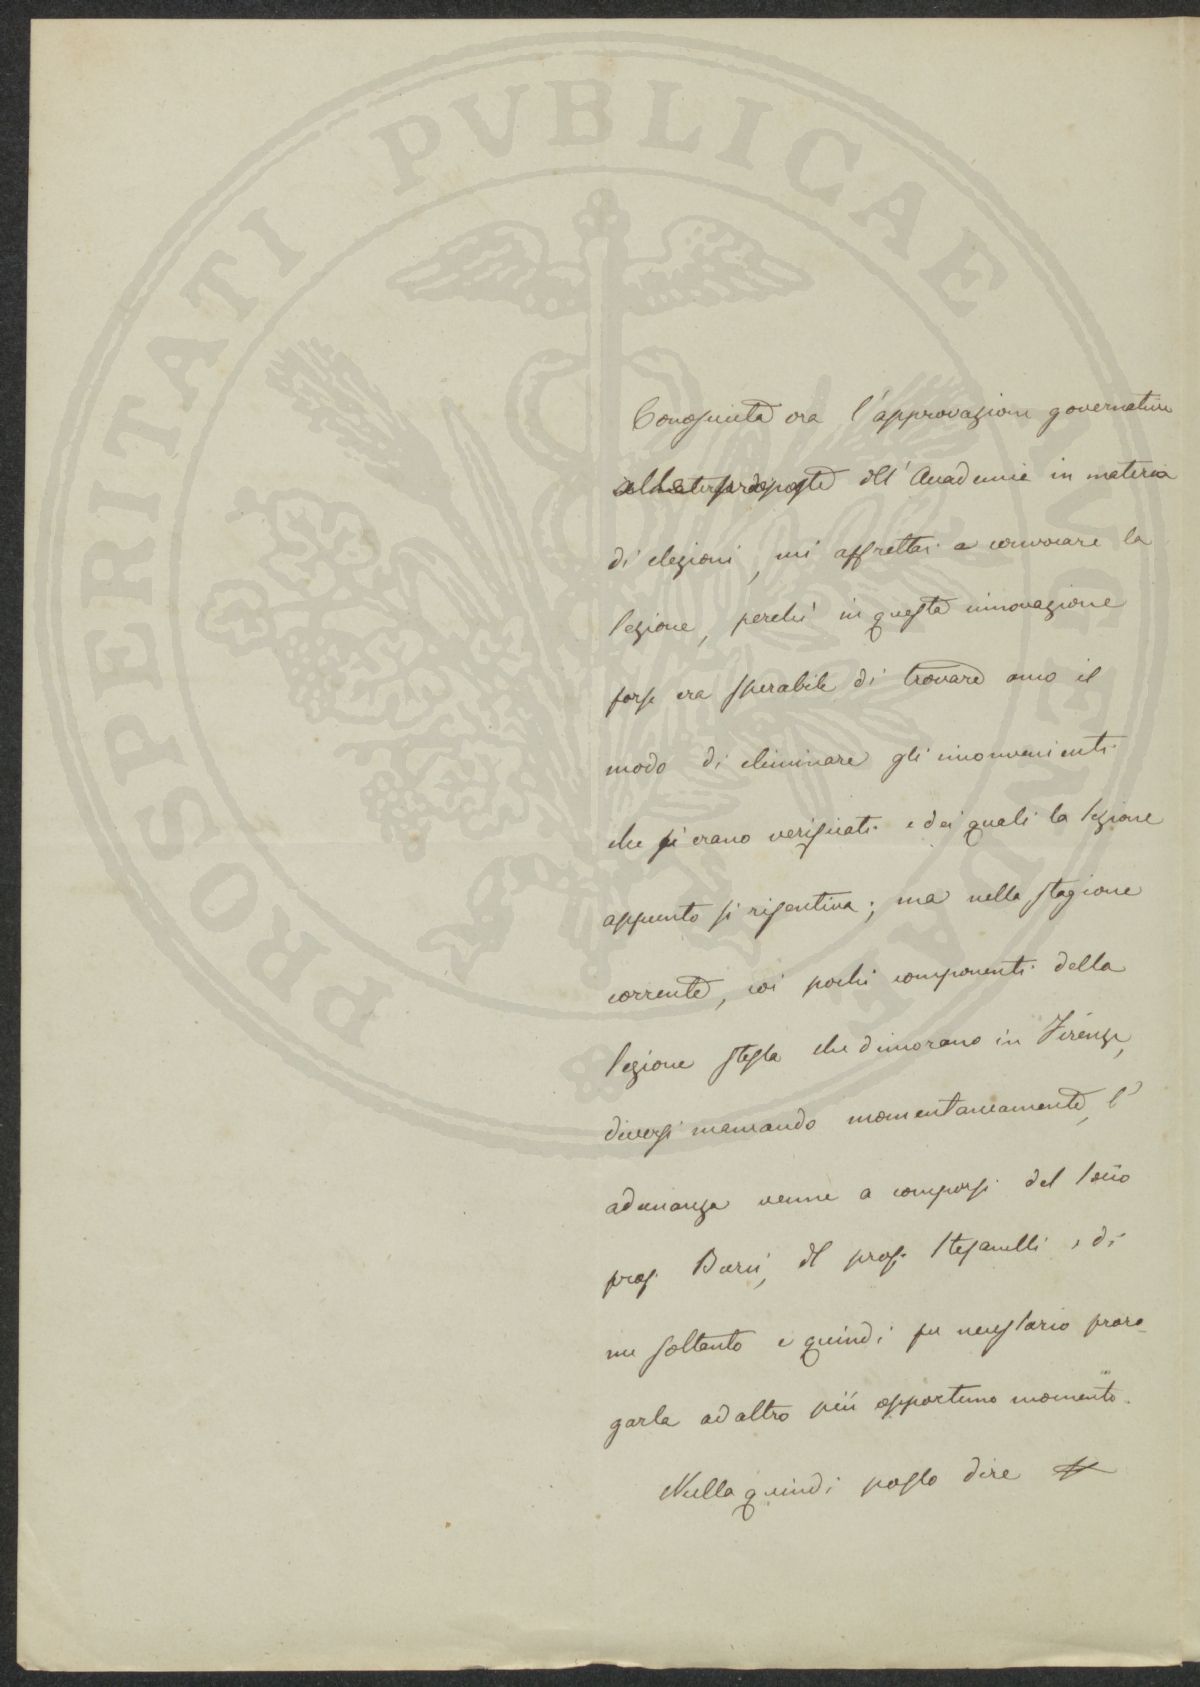 PROSPERITATI PVBLICAE AVGENDAE
Conosciuta ora l'approvazione governativa
alle proposte dell'Accademia in materia
di elezioni, mi affrettai a convocare la
Sezione, perchè in questa innovazione
forse era sperabile di trovare anco il
modo di eliminare gli inconvenienti
che si erano verificati e dei quali la Sezione
appunto si risentiva; ma nella stagione
corrente, coi pochi componenti della
Sezione stessa che dimorano in Firenze,
diversi mancando momentaneamente, l'
adunanza venne a comporsi del Socio
prof. , del prof. Stefanelli e di
me soltanto e quindi fu necessario proro-
garla ad altro più opportuno momento.
Nulla quindi posso dire